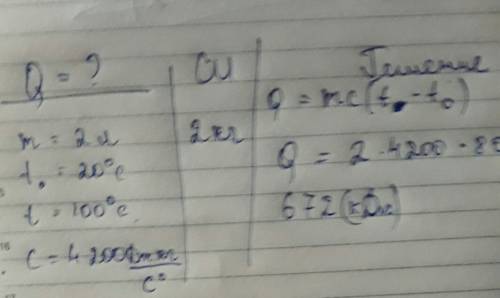 Q = ?
m = 2 л
t₀ = 20°C
t = 100°C
C = 4200
C°
СИ
2 кг
Решение
Q = mc(t - t₀)
Q = 2·4200·80
672 (кДж)